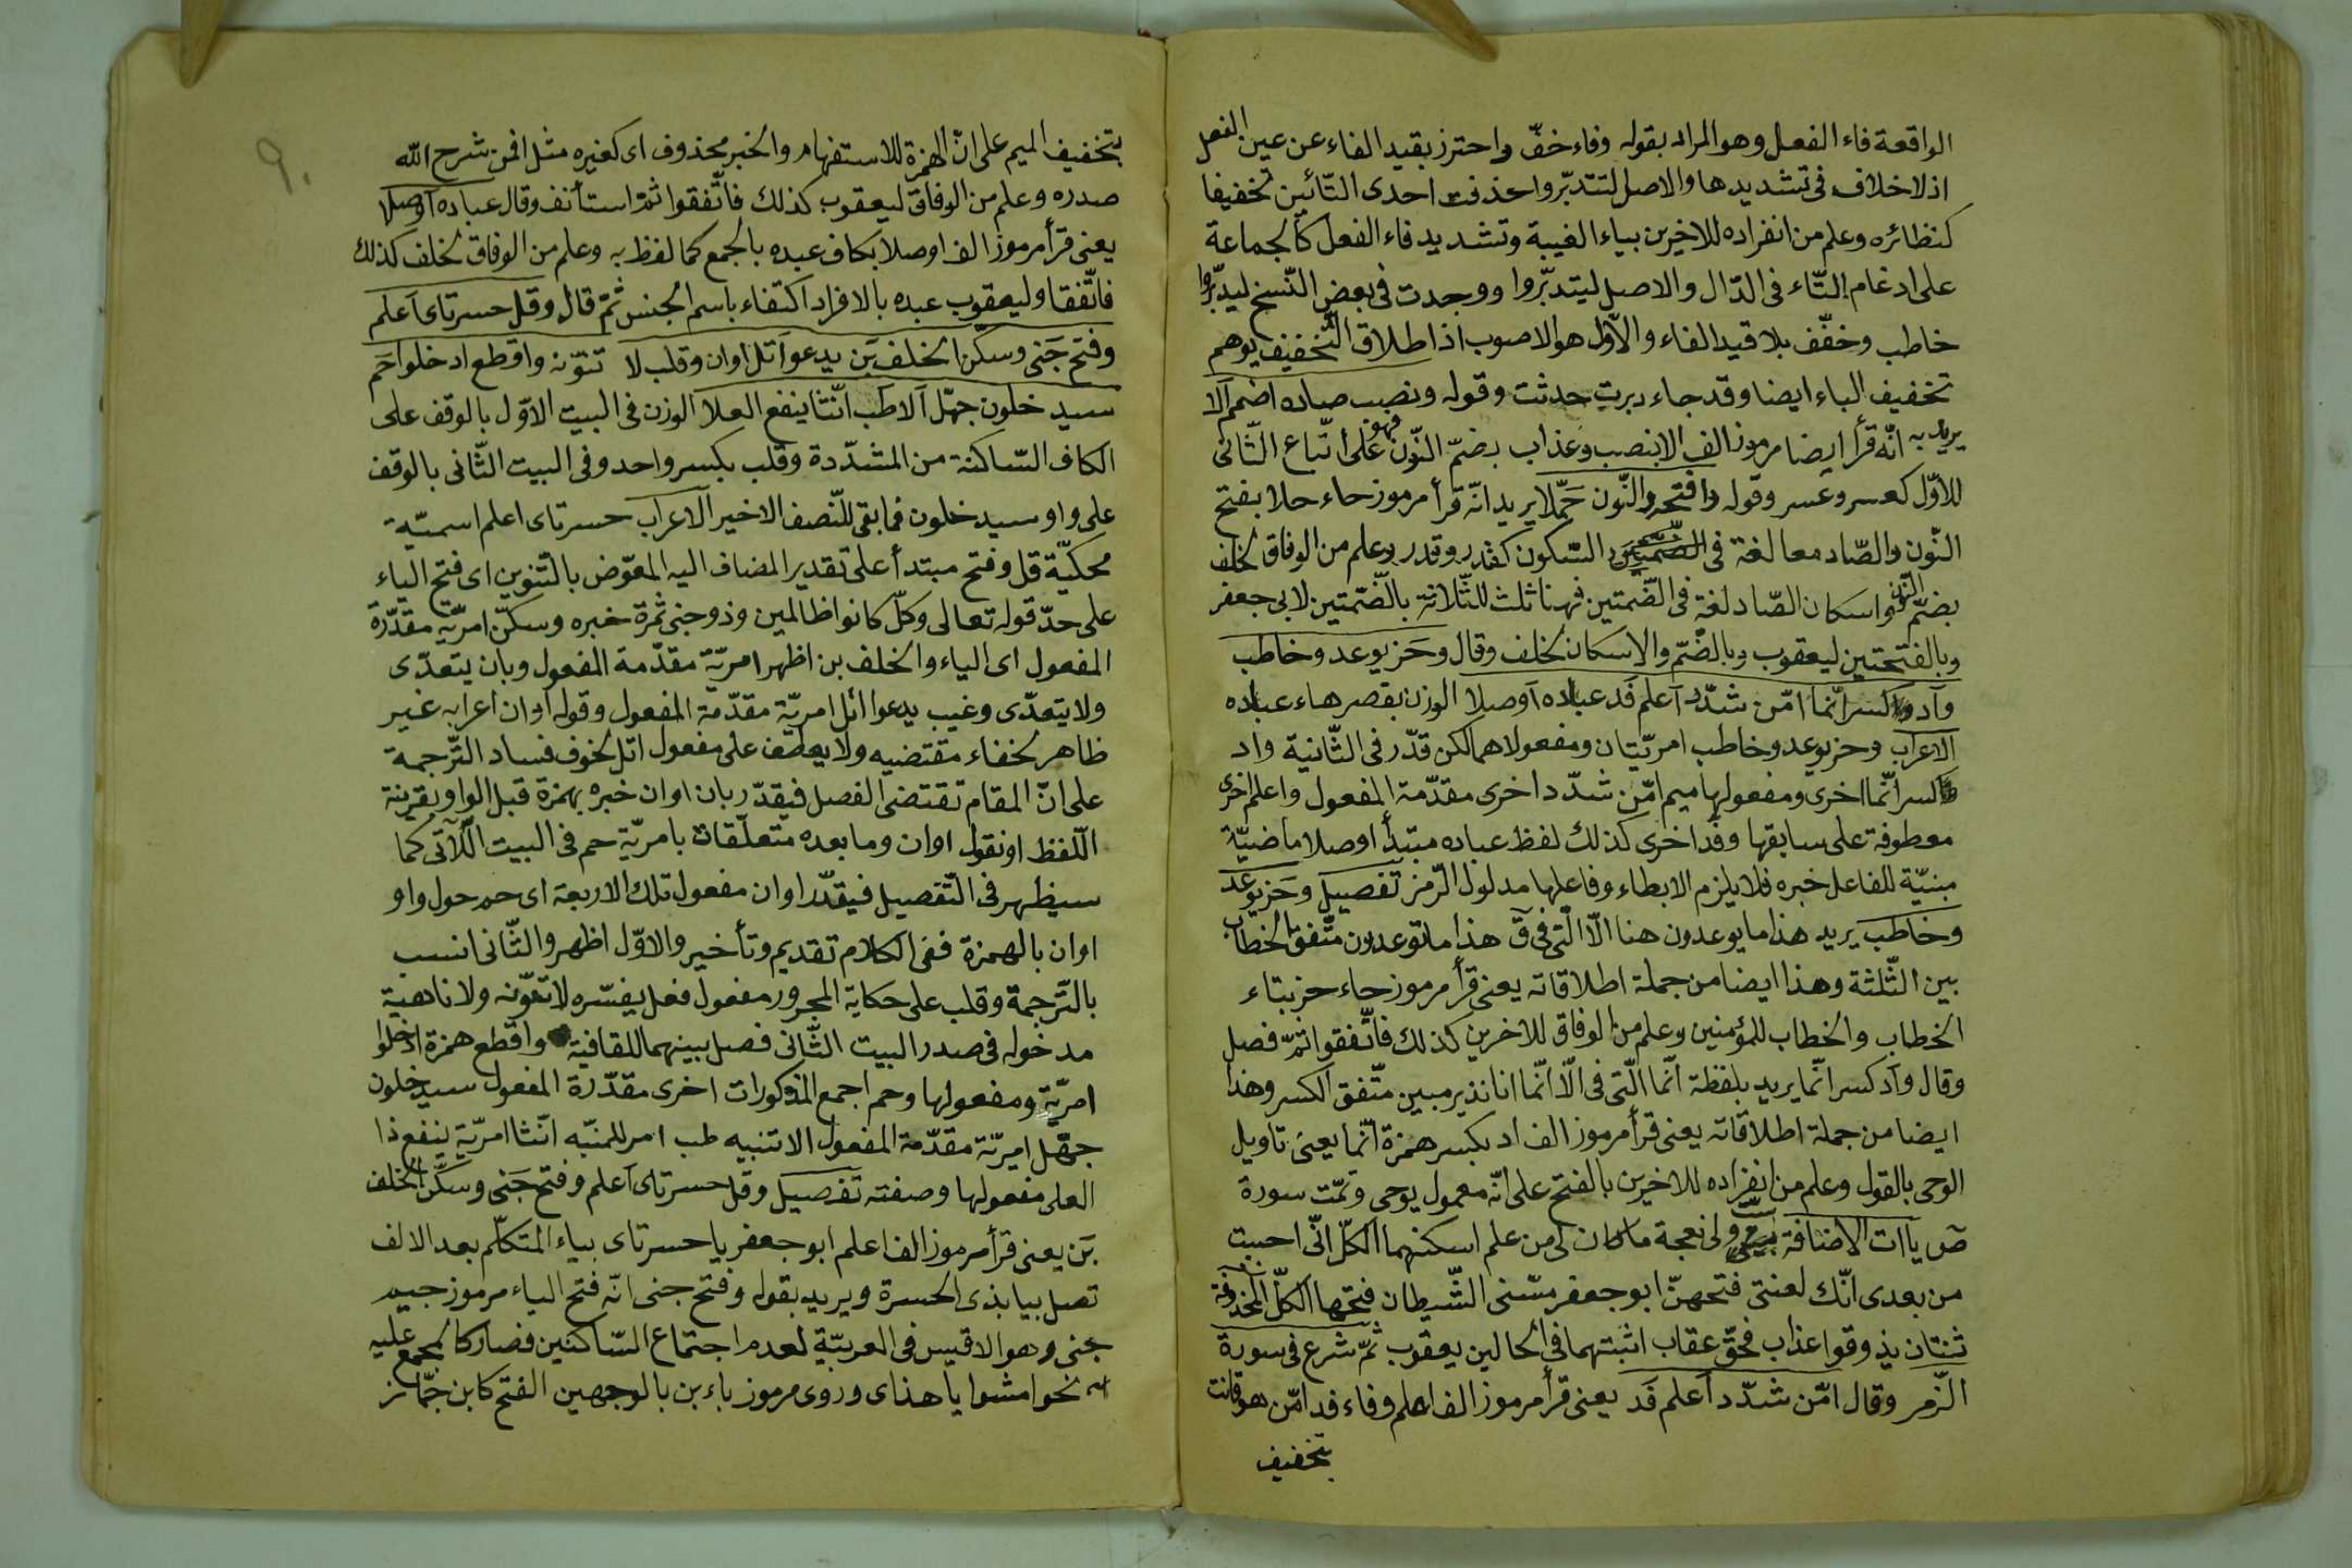 الواقعة فاء الفعل وهو المراد بقوله وفاء خفّ واحترز بقيد الفاء عن عين الفعل
اذ لا خلاف فى تشديدها والاصل لتتدبّروا حذفت احدى التّائين تخفيفا
كنظائره وعلم من انفراده للاخيرين بياء الغيبة وتشديد فاء الفعل كالجماعة
على ادغام التّاء فى الدّال والاصل ليتدبّروا ووجدت فى بعض النّسخ ليدبّروا
خاطب وخفّف بلا قيد الفاء والاوّل هو الاصوب اذ اطلاق التّخفيف يوهم
تخفيف الباء ايضا وقد جاء دبرت حدثت وقوله ونصب صاده اضمم آلا
يريد به انّه قرأ ايضا مرموز الف الا بنصب وعذاب بضمّ النّون فهو على اتّباع الثّانى
للاوّل كعسر وعسر وقوله وافتحه والنّون حمّلا يريد انّه قرأ مرموز حاء حلا بفتح
النّون والصّاد معا لغة فى السّكون كقدر وقدر وعلم من الوفاق لخلف
بضمّ النّون واسكان الصّاد لغة فى الضّمتين فهنا ثلث للثّلاثة بالضّمتين لابى جعفر
وبالفتحتين ليعقوب وبالضّم والاسكان لخلف وقال وحز يوعدو خاطب
وآد كسر انّما امّن شدّد آعلم فد عباده آوصلا الوزن بقصر هاء عباده
الاعراب وحز يوعدو خاطب امريّتان ومفعولاهما لكن قدّر فى الثّانية واد
كسر انّما اخرى ومفعولها ميم امّن شدّد اخرى مقدّمة المفعول واعلم اخرى
معطوفة على سابقها وفد اخرى كذلك لفظ عباده مبتدأ اوصلا ماضيّة
مبنيّة للفاعل خبره فلا يلزم الابطاء وفاعلها مدلول الرّمز تفصيل وحز يوعد
وخاطب يريد هذا ما يوعدون هنا الّا الّتى فى ق هذا ما توعدون متّفق بالخطاب
بين الثّلثة وهذا ايضا من جملة اطلاقاته يعنى قرأ مرموز حاء حز بتاء
الخطاب والخطاب للمؤمنين وعلم من الوفاق للاخرين كذلك فاتّفقوا ثمّ فصل
وقال وآد كسر انّما يريد بلفظة انّما الّتى فى الّا انّما انا نذير مبين متّفق الكسر وهذا
ايضا من جملة اطلاقاته يعنى قرأ مرموز الف اد بكسر همزة انّما يعنى تاويل
الوحى بالقول وعلم من انفراده للاخرين بالفتح على انّه معمول يوحى وتمّت سورة
صۤ ياات الاضافة ولى نعجة ما كان لى من علم اسكنهما الكلّ انّى احببت
من بعدى انّك لعنتى فتحهنّ ابو جعفر مسّنى الشّيطان فتحها الكلّ المحذوفة
ثنتان يذوقوا عذاب فحقّ عقاب اثبتهما فى الحالين يعقوب ثمّ شرع فى سورة
الزّمر وقال امّن شدّد آعلم فد يعنى قرأ مرموز الف اعلم وفاء فد امّن هو قانت
تخفيف
٩٠
بتخفيف الميم على انّ الهمزة للاستفهام والخبر محذوف اى كغيره مثل افمن شرح اللّه
صدره وعلم من الوفاق ليعقوب كذلك فاتّفقوا ثمّ استأنف وقال عباده آوصلا
يعنى قرأ مرموز الف اوصلا بكاف عبده بالجمع كما لفظ به وعلم من الوفاق لخلف كذلك
فاتّفقا وليعقوب عبده بالافراد اكتفاء باسم الجنس ثمّ قال وقل حسرتاى اعلم
وفتح جنى وسكّن الخلف بن يدعو اتل اوان وقلب لا تنوّنه واقطع ادخلوا حم
سيدخلون جهّل آلا طب انّثا ينفع العلا الوزن فى البيت الاوّل بالوقف على
الكاف السّاكنة من المشدّدة وقلب بكسر واحد وفى البيت الثّانى بالوقف
على واو سيدخلون فما بقى للنّصف الاخير الاعراب حسرتاى اعلم اسميّة
محكيّة قل وفتح مبتدأ على تقدير المضاف اليه المعوّض بالتّنوين اى فتح الياء
على حدّ قوله تعالى وكلّ كانوا ظالمين وذو جنى ثمرة خبره وسكّن امريّة مقدّرة
المفعول اى الياء والخلف بن اظهر امريّة مقدّمة المفعول وبان يتعدّى
ولا يتعدّى وغيب يدعوا اتل امريّة مقدّمة المفعول وقوله اوان اعرابه غير
ظاهر لخفاء مقتضيه ولا يعطف على مفعول اتل لخوف فساد التّرجمة
على انّ المقام تقتضى الفصل فيقدّر بان اوان خبره بهمزة قبل الواو بقرينة
اللّفظ او نقول اوان وما بعده متعلّقات بامريّة حم فى البيت الآتى كما
سيظهر فى التّفصيل فيقدّر اوان مفعول تلك الاربعة اى حم حول واو
اوان بالهمزة ففى الكلام تقديم وتأخير والاوّل اظهر والثّانى انسب
بالتّرجمة وقلب على حكاية المجرور مفعول فعل يفسّره لا تنوّنه ولا ناهية
مدخوله فى صدر البيت الثّانى فصل بينهما للقافية واقطع همزة ادخلوا
امريّة ومفعولها وحم اجمع المذكورات اخرى مقدّرة المفعول سيدخلون
جهّل امريّة مقدّمة المفعول الا تنبيه طب امر للمنبّه انّثا امريّة ينفع ذا
العلى مفعولها وصفته تفصيل وقل حسرتاى اعلم وفتح جنى وسكّن الخلف
بن يعنى قرأ مرموز الف اعلم ابو جعفر يا حسرتاى بياء المتكلّم بعد الالف
تصل بيا بذى الحسرة ويريد بقوله وفتح جنى انّه فتح الياء مرموز جيم
جنى وهو الاقيس فى العربيّة لعدم اجتماع السّاكنين فصار كالمجمع عليه
نحو امشوا يا هذاى وروى مرموز باء بن بالوجهين الفتح كابن جمّاز